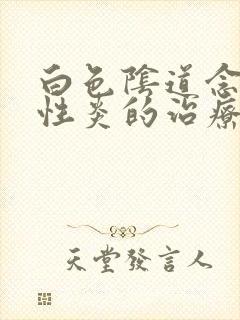 白色陰道念
性炎的治療
天堂發言人